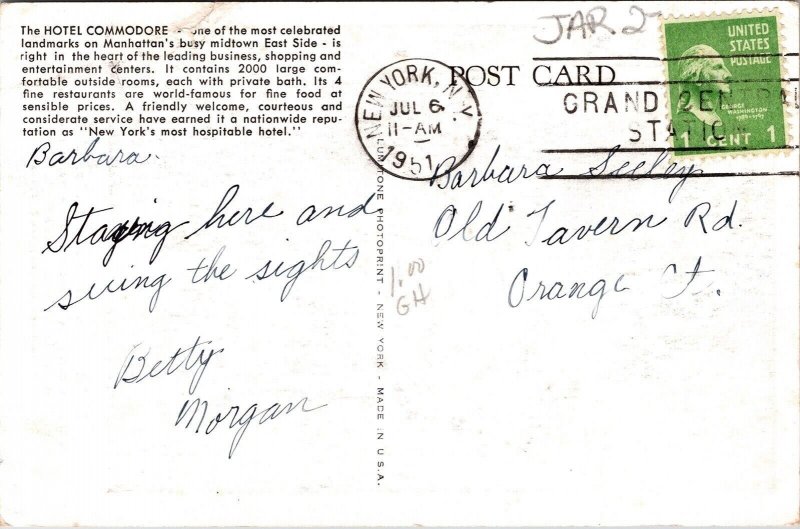 The HOTEL COMMODORE - One of the most celebrated
landmarks on Manhattan's busy midtown East Side - is
right in the heart of the leading business, shopping and
entertainment centers. It contains 2000 large com-
fortable outside rooms, each with private bath. Its 4
fine restaurants are world-famous for fine food at
sensible prices. A friendly welcome, courteous and
considerate service have earned it a nationwide repu-
tation as "New York's most hospitable hotel."
Barbara.
Staying here and
seeing the sights
Betty
Morgan
LUMITONE PHOTOPRINT - NEW YORK - MADE IN U.S.A.
1.00
GH
JAR 2
POST CARD
NEW YORK, N.Y.
JUL 6
11-AM
1951
GRAND CENTRAL
STATIO
UNITED
STATES
POSTAGE
GEORGE
WASHINGTON
1789-1797
1 CENT 1
Barbara Seeley
Old Tavern Rd.
Orange Ct.